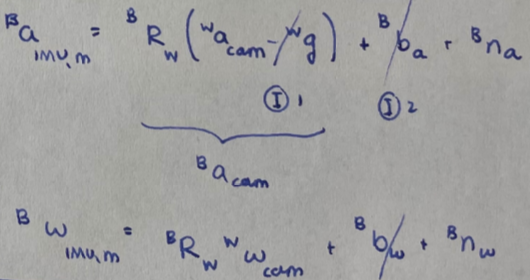 ᴮa_IMU,m = ᴮR_W (ᵂa_cam - ᵂg) + ᴮb_a + ᴮn_a
Ⓘ 1 Ⓘ 2
ᴮa_cam
ᴮω_IMU,m = ᴮR_W ᵂω_cam + ᴮb_ω + ᴮn_ω